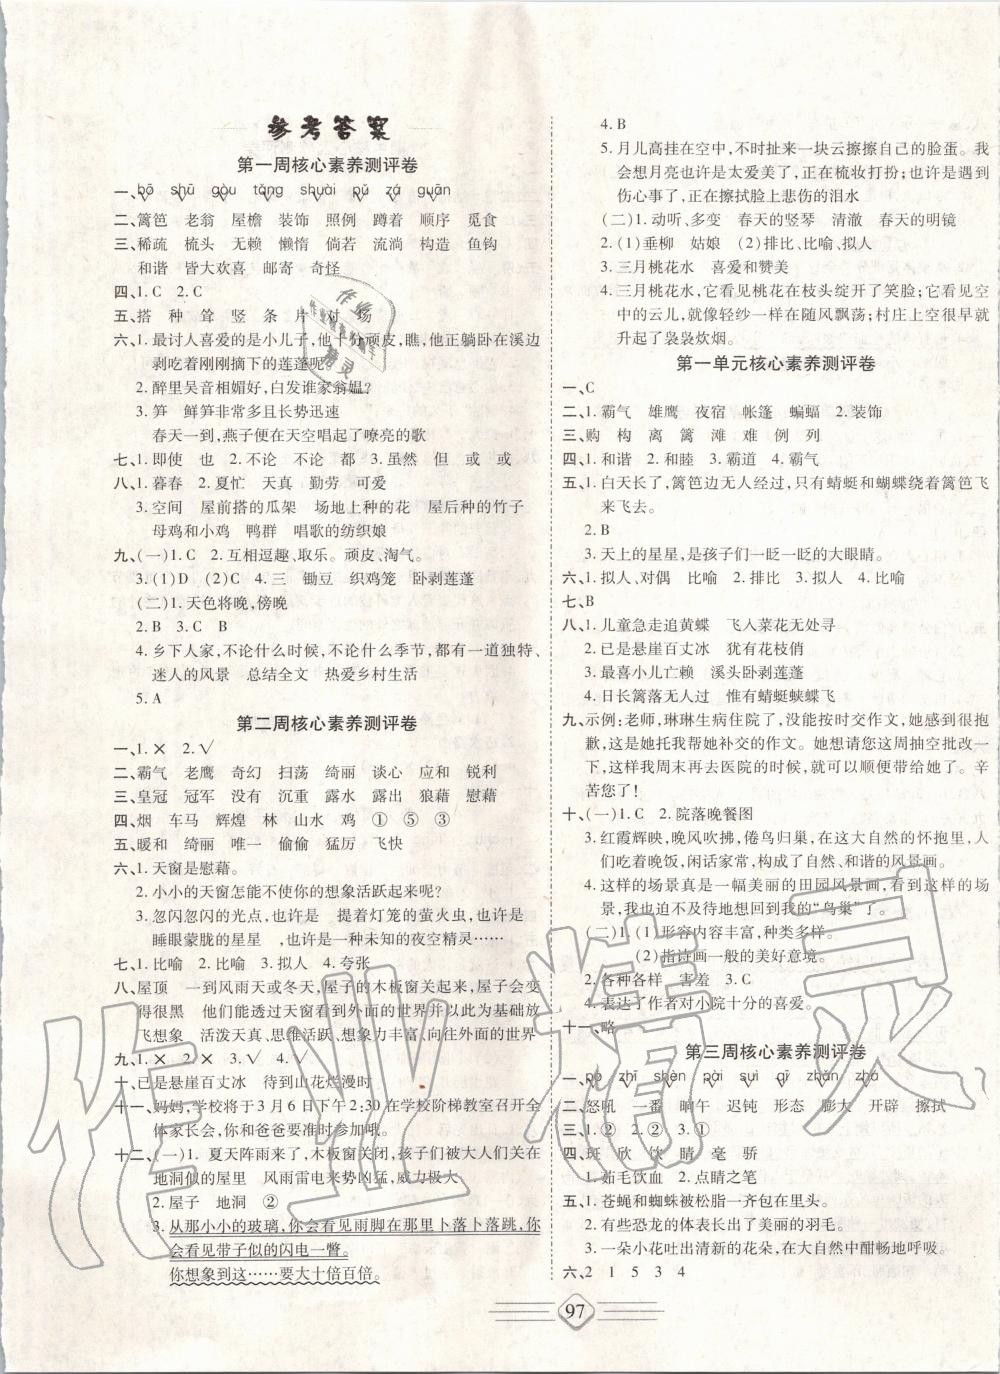 参考答案
第一周核心素养测评卷
一、bō shū gòu tǎng shuài pǔ zá guān
二、篱笆 老翁 屋檐 装饰 照例 蹲着 顺序 觅食
三、稀疏 梳头 无赖 懒惰 倘若 流淌 构造 鱼钩
和谐 皆大欢喜 邮寄 奇怪
四、1.C 2.C
五、搭 种 耸 竖 条 片 对 场
六、1.最讨人喜爱的是小儿子,他十分顽皮,瞧,他正躺卧在溪边
剥吃着刚刚摘下的莲蓬呢。
2.醉里吴音相媚好,白发谁家翁媪?
3.笋 鲜笋非常多且长势迅速
春天一到,燕子便在天空唱起了嘹亮的歌
七、1.即使 也 2.不论 不论 都 3.虽然 但 或 或
八、1.暮春 2.夏忙 天真 勤劳 可爱
3.空间 屋前搭的瓜架 场地上种的花 屋后种的竹子
母鸡和小鸡 鸭群 唱歌的纺织娘
九、(一)1.C 2.互相逗趣、取乐。顽皮、淘气。
3.(1)D (2)C 4.三 锄豆 织鸡笼 卧剥莲蓬
(二)1.天色将晚,傍晚
2.B 3.C B
4.乡下人家,不论什么时候,不论什么季节,都有一道独特、
迷人的风景 总结全文 热爱乡村生活
5.A
第二周核心素养测评卷
一、1.× 2.√
二、霸气 老鹰 奇幻 扫荡 绮丽 谈心 应和 锐利
三、皇冠 冠军 没有 沉重 露水 露出 狼藉 慰藉
四、烟 车马 辉煌 林 山水 鸡 ① ⑤ ③
五、暖和 绮丽 唯一 偷偷 猛厉 飞快
六、1.天窗是慰藉。
2.小小的天窗怎能不使你的想象活跃起来呢?
3.忽闪忽闪的光点,也许是 提着灯笼的萤火虫,也许是
睡眼蒙胧的星星 ,也许是一种未知的夜空精灵……
七、1.比喻 2.比喻 3.拟人 4.夸张
八、屋顶 一到风雨天或冬天,屋子的木板窗关起来,屋子会变
得很黑 他们能透过天窗看到外面的世界并以此为基础放
飞想象 活泼天真、思维活跃、想象力丰富、向往外面的世界
九、1.× 2.× 3.√ 4.√
十、已是悬崖百丈冰 待到山花烂漫时
十一、妈妈,学校将于3月6日下午2:30在学校阶梯教室召开全
体家长会,你和爸爸要准时参加哦。
十二、(一)1. 夏天阵雨来了,木板窗关闭,孩子们被大人们关在
地洞似的屋里 风雨雷电来势凶猛,威力极大
2.屋子 地洞 ②
3.从那小小的玻璃,你会看见雨脚在那里卜落卜落跳,你
会看见带子似的闪电一瞥。
你想象到这……要大十倍百倍。
4.B
5.月儿高挂在空中,不时扯来一块云擦擦自己的脸蛋。我
想月亮也许是太爱美了,正在梳妆打扮;也许是遇到了
伤心事了,正在擦拭脸上悲伤的泪水
(二)1.动听、多变 春天的竖琴 清澈 春天的明镜
2.(1)垂柳 姑娘 (2)排比、比喻、拟人
3.三月桃花水 喜爱和赞美
4.三月桃花水,它看见桃花在枝头绽开了笑脸;它看见空
中的云儿,就像轻纱一样在随风飘荡;村庄上空,早早就
升起了袅袅炊烟。
第一单元核心素养测评卷
一、C
二、1.霸气 雄鹰 夜宿 帐篷 蝙蝠 2.装饰
三、购 构 离 篱 滩 难 例 列
四、1.和谐 2.和睦 3.霸道 4.霸气
五、1.白天长了,篱笆边无人经过,只有蜻蜓和蝴蝶绕着篱笆飞
来飞去。
2.B
3.天上的星星,是孩子们一眨一眨的大眼睛。
六、1.拟人、对偶 比喻 2.排比 3.拟人 4.比喻
七、B
八、1.儿童急走追黄蝶 飞入菜花无处寻
2.已是悬崖百丈冰 犹有花枝俏
3.最喜小儿亡赖 溪头卧剥莲蓬
4.日长篱落无人过 惟有蜻蜓蛱蝶飞
九、示例:老师,琳琳生病住院了,没能按时交作文,她感到很抱
歉,这是她托我帮她补交的作文。她想请您这周抽空批改一
下,我周末再去医院的时候,就可以顺便带给她了。辛
苦您了!
十、(一)1.C 2.院落晚餐图
3.红霞辉映,晚风吹拂,倦鸟归巢,在这大自然的怀抱里,人
们吃着晚饭,闲话家常,构成了自然、和谐的风景画。
4.这样的场景真是一幅美丽的田园风景画,看着这样的场
景,我也迫不及待地想回到我的“鸟巢”了。
(二)1.(1)形容内容丰富,种类多样。
(2)指诗画一般的美好意境。
2.各种各样 害羞 3.C
4.表达了作者对小院十分的喜爱。
十一、略
第三周核心素养测评卷
一、pò zhī shèn pài suì qī zhǎn zhá
二、怒吼 一番 晌午 迟钝 形态 膨大 开辟 擦拭
三、1.② 2.② 3.①
四、斑 欣 饮 睛 毫 骄
1.茹毛饮血 2.点睛之笔
五、1.苍蝇和蜘蛛被松脂一齐包在里头。
2.有些恐龙的体表长出了美丽的羽毛。
3.一朵小花吐出清新的花朵,在大自然中酣畅地呼吸。
六、2 1 5 3 4
97
作业精灵